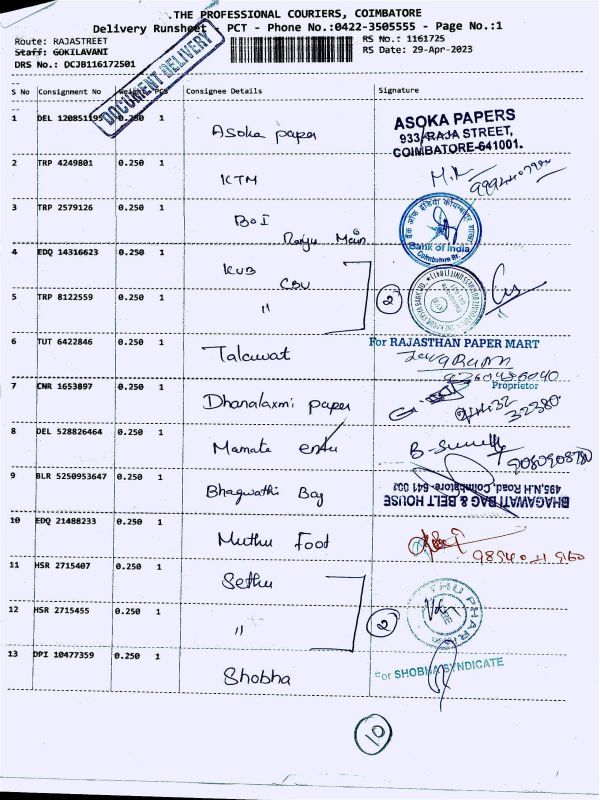 .THE PROFESSIONAL COURIERS, COIMBATORE
Delivery Runsheet PCT - Phone No.:0422-3505555 - Page No.:1
Route: RAJASTREET RS No.: 1161725
Staff: GOKILAVANI RS Date: 29-Apr-2023
DRS No.: DCJB116172501
DOCUMENT DELIVERY
S No Consignment No Weight PCS Consignee Details Signature
1 DEL 120851195 0.250 1 Asoka paper ASOKA PAPERS
933/RAJA STREET,
COIMBATORE-641001.
2 TRP 4249801 0.250 1 KTM M.K
3 TRP 2579126 0.250 1 BOI
Raju Main
Bank of India
Coimbatore Br.
4 EDQ 14316623 0.250 1 KVB
CBU
5 TRP 8122559 0.250 1 " 2
6 TUT 6422846 0.250 1 Talawat For RAJASTHAN PAPER MART
Proprietor
7 CNR 1653897 0.250 1 Dhanalaxmi paper
8 DEL 528826464 0.250 1 Mamate
9080908780
9 BLR 5250953647 0.250 1 Bhagwathi Bag BHAGAWATI BAG & BELT HOUSE
495,N.H.Road, Coimbatore- 641 001
10 EDQ 21488233 0.250 1 Muthu Foot
11 HSR 2715407 0.250 1 Sethu
12 HSR 2715455 0.250 1 " 2
13 DPI 10477359 0.250 1 Shobha For SHOBHA SYNDICATE
10